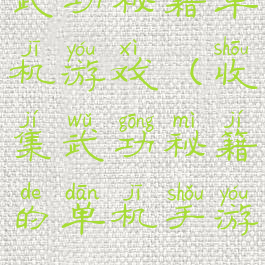 武功秘籍单
jī yóu xì shōu
机游戏（收
jí wǔ gōng mì jí
集武功秘籍
de dān jī shǒu yóu
的单机手游